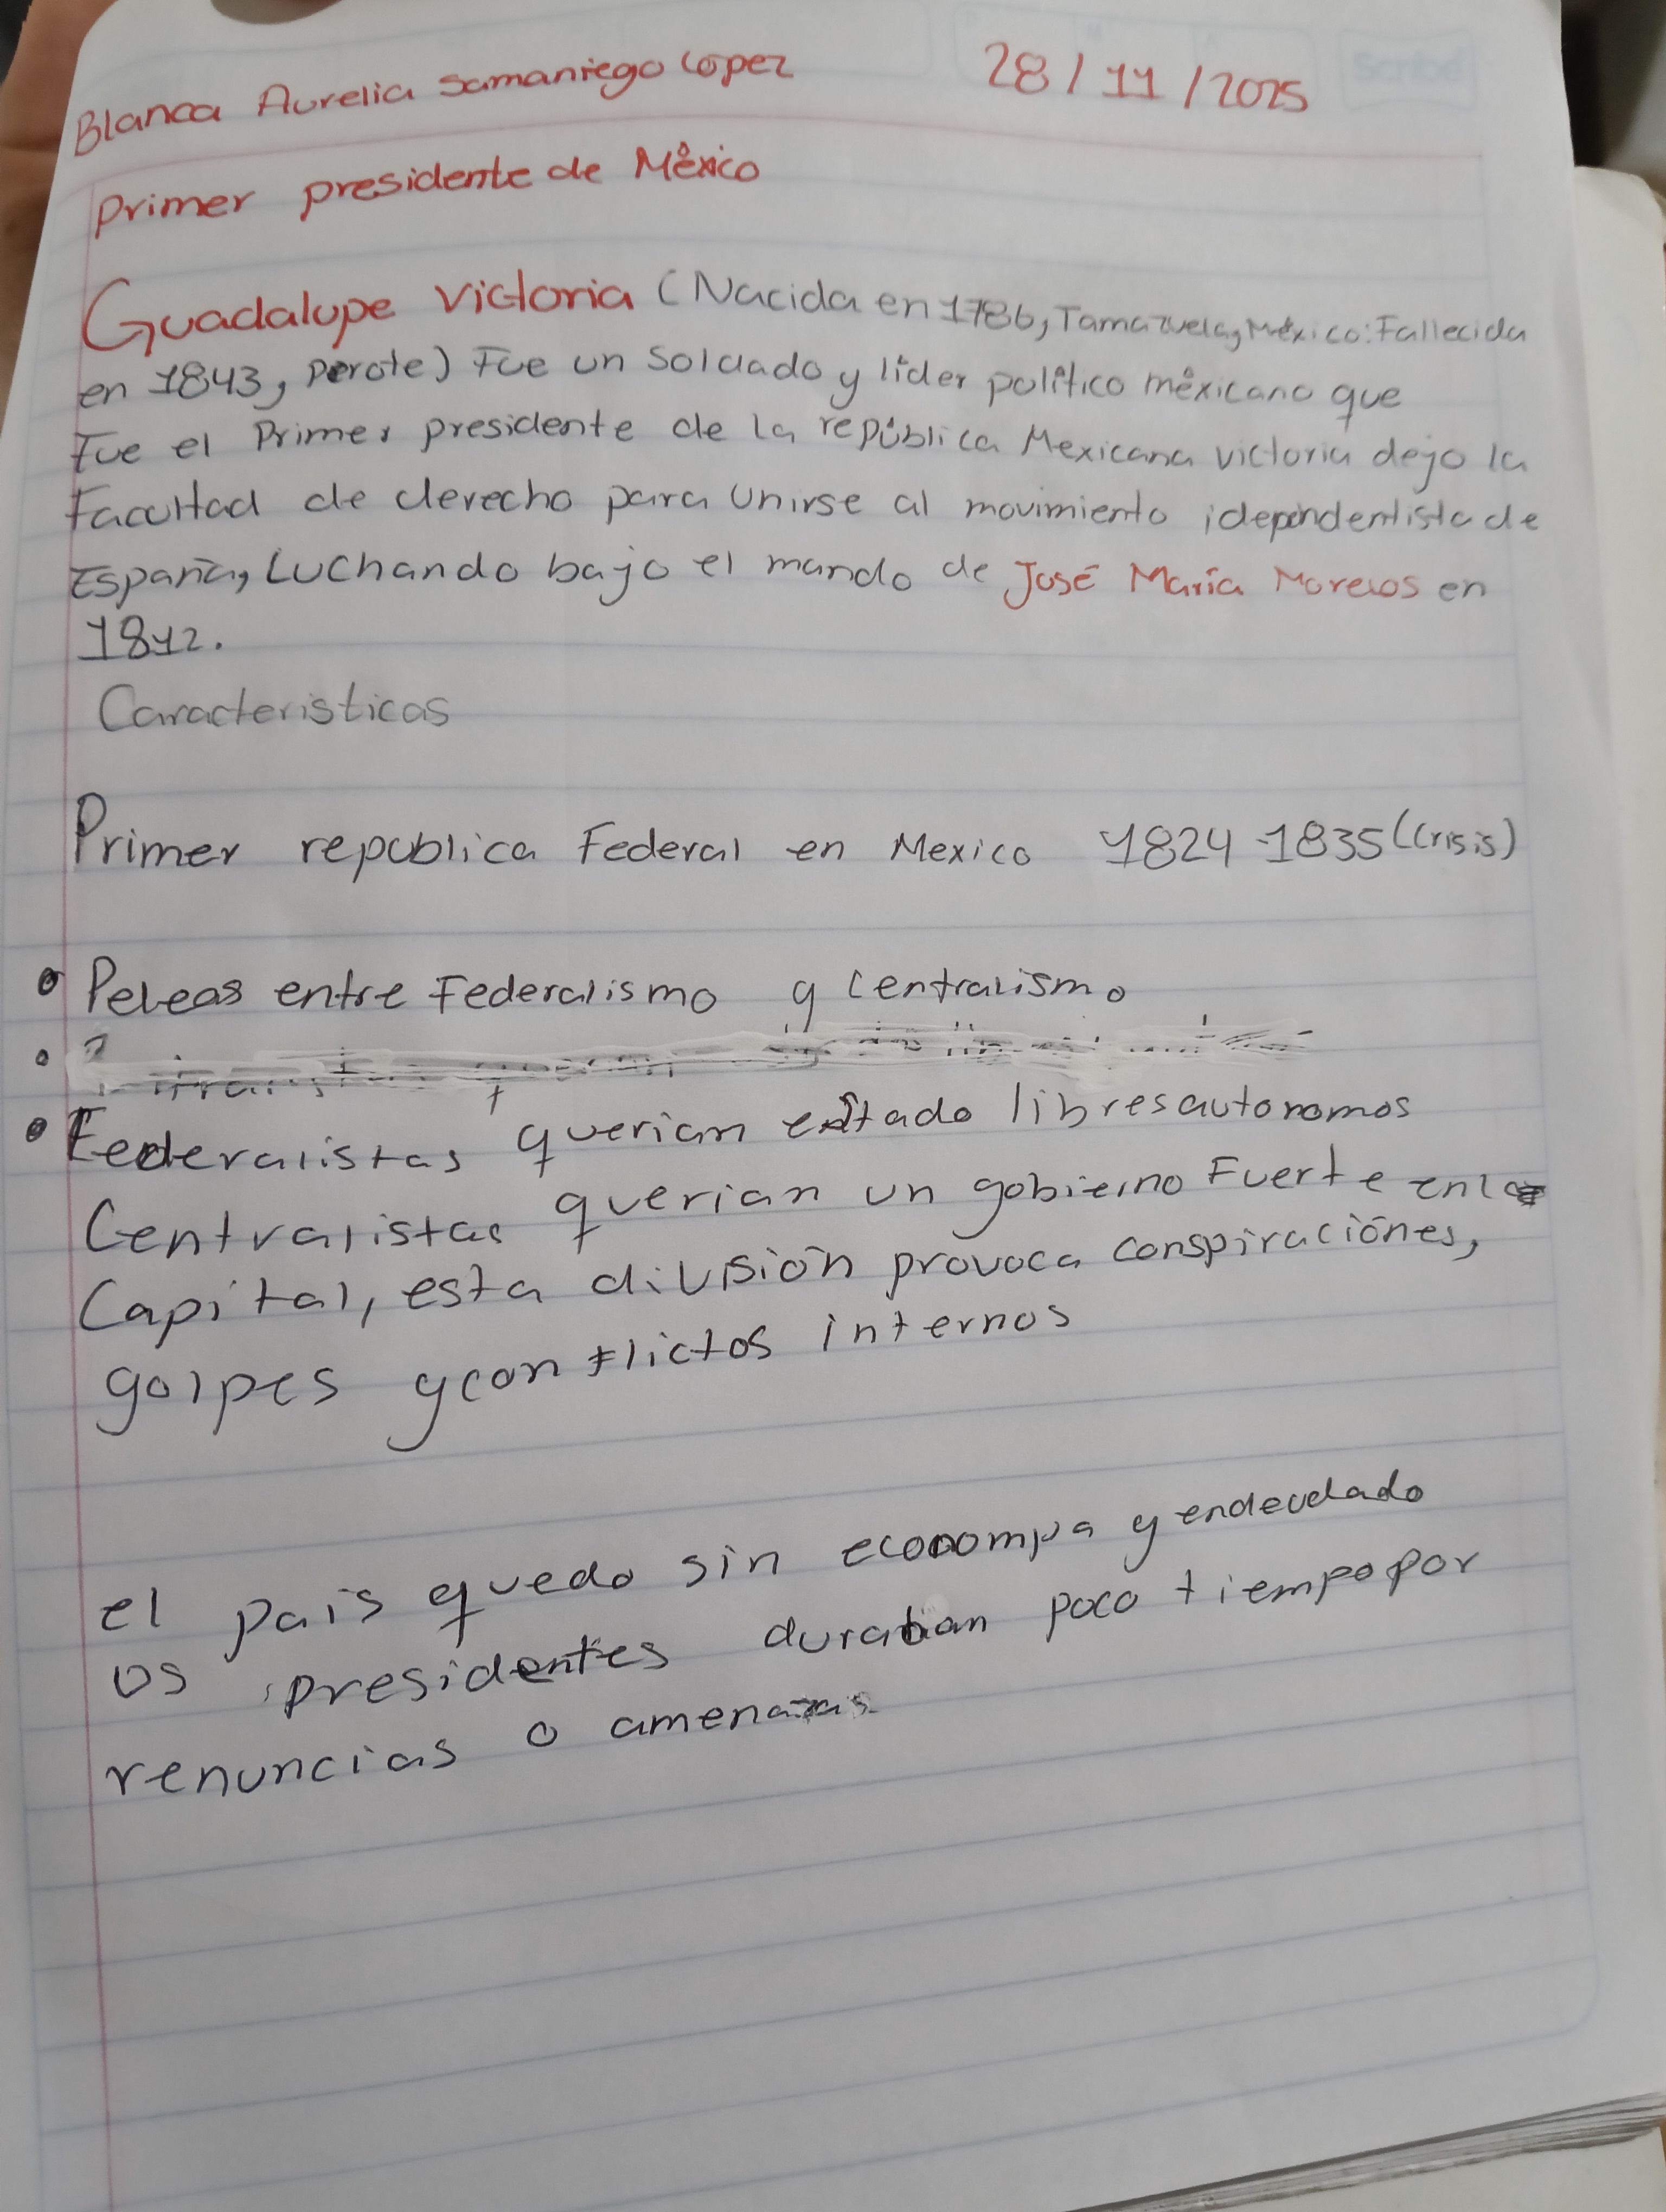 Scribe
Blanca Aurelia Samaniego Lopez 28/11/2025
Primer presidente de México
Guadalupe Victoria (Nacida en 1786, Tamazuela, México: Fallecida
en 1843, Perote) Fue un Soldado y líder político méxicano que
Fue el Primer presidente de la república Mexicana victoria dejo la
Facultad de derecho para Unirse al movimiento idependentista de
España, Luchando bajo el mando de José María Morelos en
1812.
Caracteristicas
Primer republica Federal en Mexico 1824-1835 (Crisis)
• Peleas entre Federalismo y Centralismo
• Federalistas querian estado libres autonomos
Centralistas querian un gobierno Fuerte en la
Capital, esta división provoca conspiraciónes,
golpes y conflictos internos
el pais quedo sin y
os presidentes duraban poco tiempo por
renuncias o amenazas